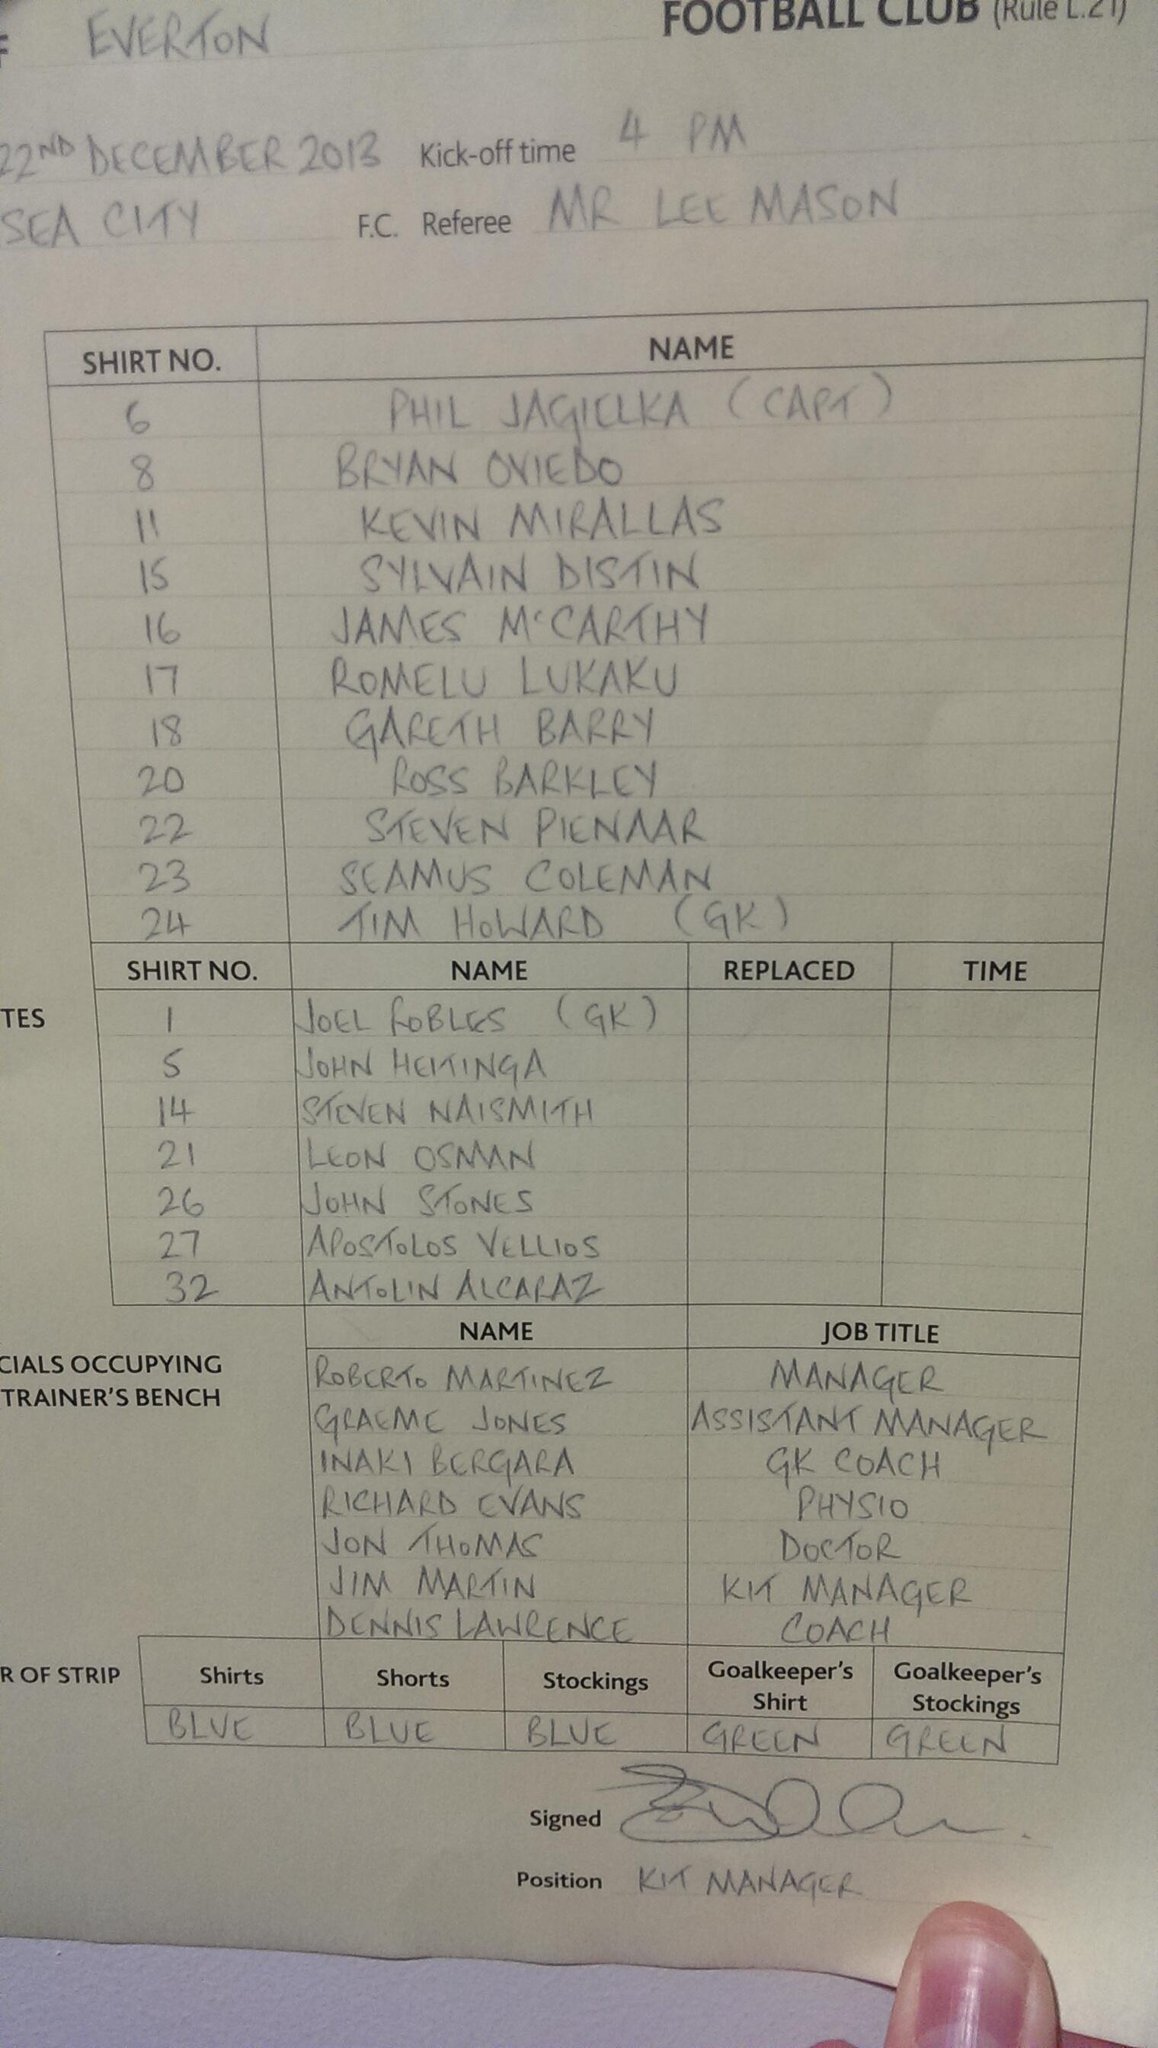 EVERTON FOOTBALL CLUB (Rule L.21)
22ND DECEMBER 2013 Kick-off time 4 PM
SEA CITY F.C. Referee MR LEE MASON
SHIRT NO. NAME
6 PHIL JAGIELKA (CAPT)
8 BRYAN OVIEDO
11 KEVIN MIRALLAS
15 SYLVAIN DISTIN
16 JAMES McCARTHY
17 ROMELU LUKAKU
18 GARETH BARRY
20 ROSS BARKLEY
22 STEVEN PIENAAR
23 SEAMUS COLEMAN
24 TIM HOWARD (GK)
SHIRT NO. NAME REPLACED TIME
TES 1 JOEL ROBLES (GK)
5 JOHN HEITINGA
14 STEVEN NAISMITH
21 LEON OSMAN
26 JOHN STONES
27 APOSTOLOS VELLIOS
32 ANTOLIN ALCARAZ
NAME JOB TITLE
CIALS OCCUPYING
TRAINER'S BENCH
ROBERTO MARTINEZ MANAGER
GRAEME JONES ASSISTANT MANAGER
INAKI BERGARA GK COACH
RICHARD EVANS PHYSIO
JON THOMAS DOCTOR
JIM MARTIN KIT MANAGER
DENNIS LAWRENCE COACH
R OF STRIP Shirts Shorts Stockings Goalkeeper's Shirt Goalkeeper's Stockings
BLUE BLUE BLUE GREEN GREEN
Signed
Position KIT MANAGER